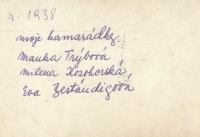 r. 1938
moje kamarádky
Manka Trýbová
Milena Kozohorská
Eva Bestándigová